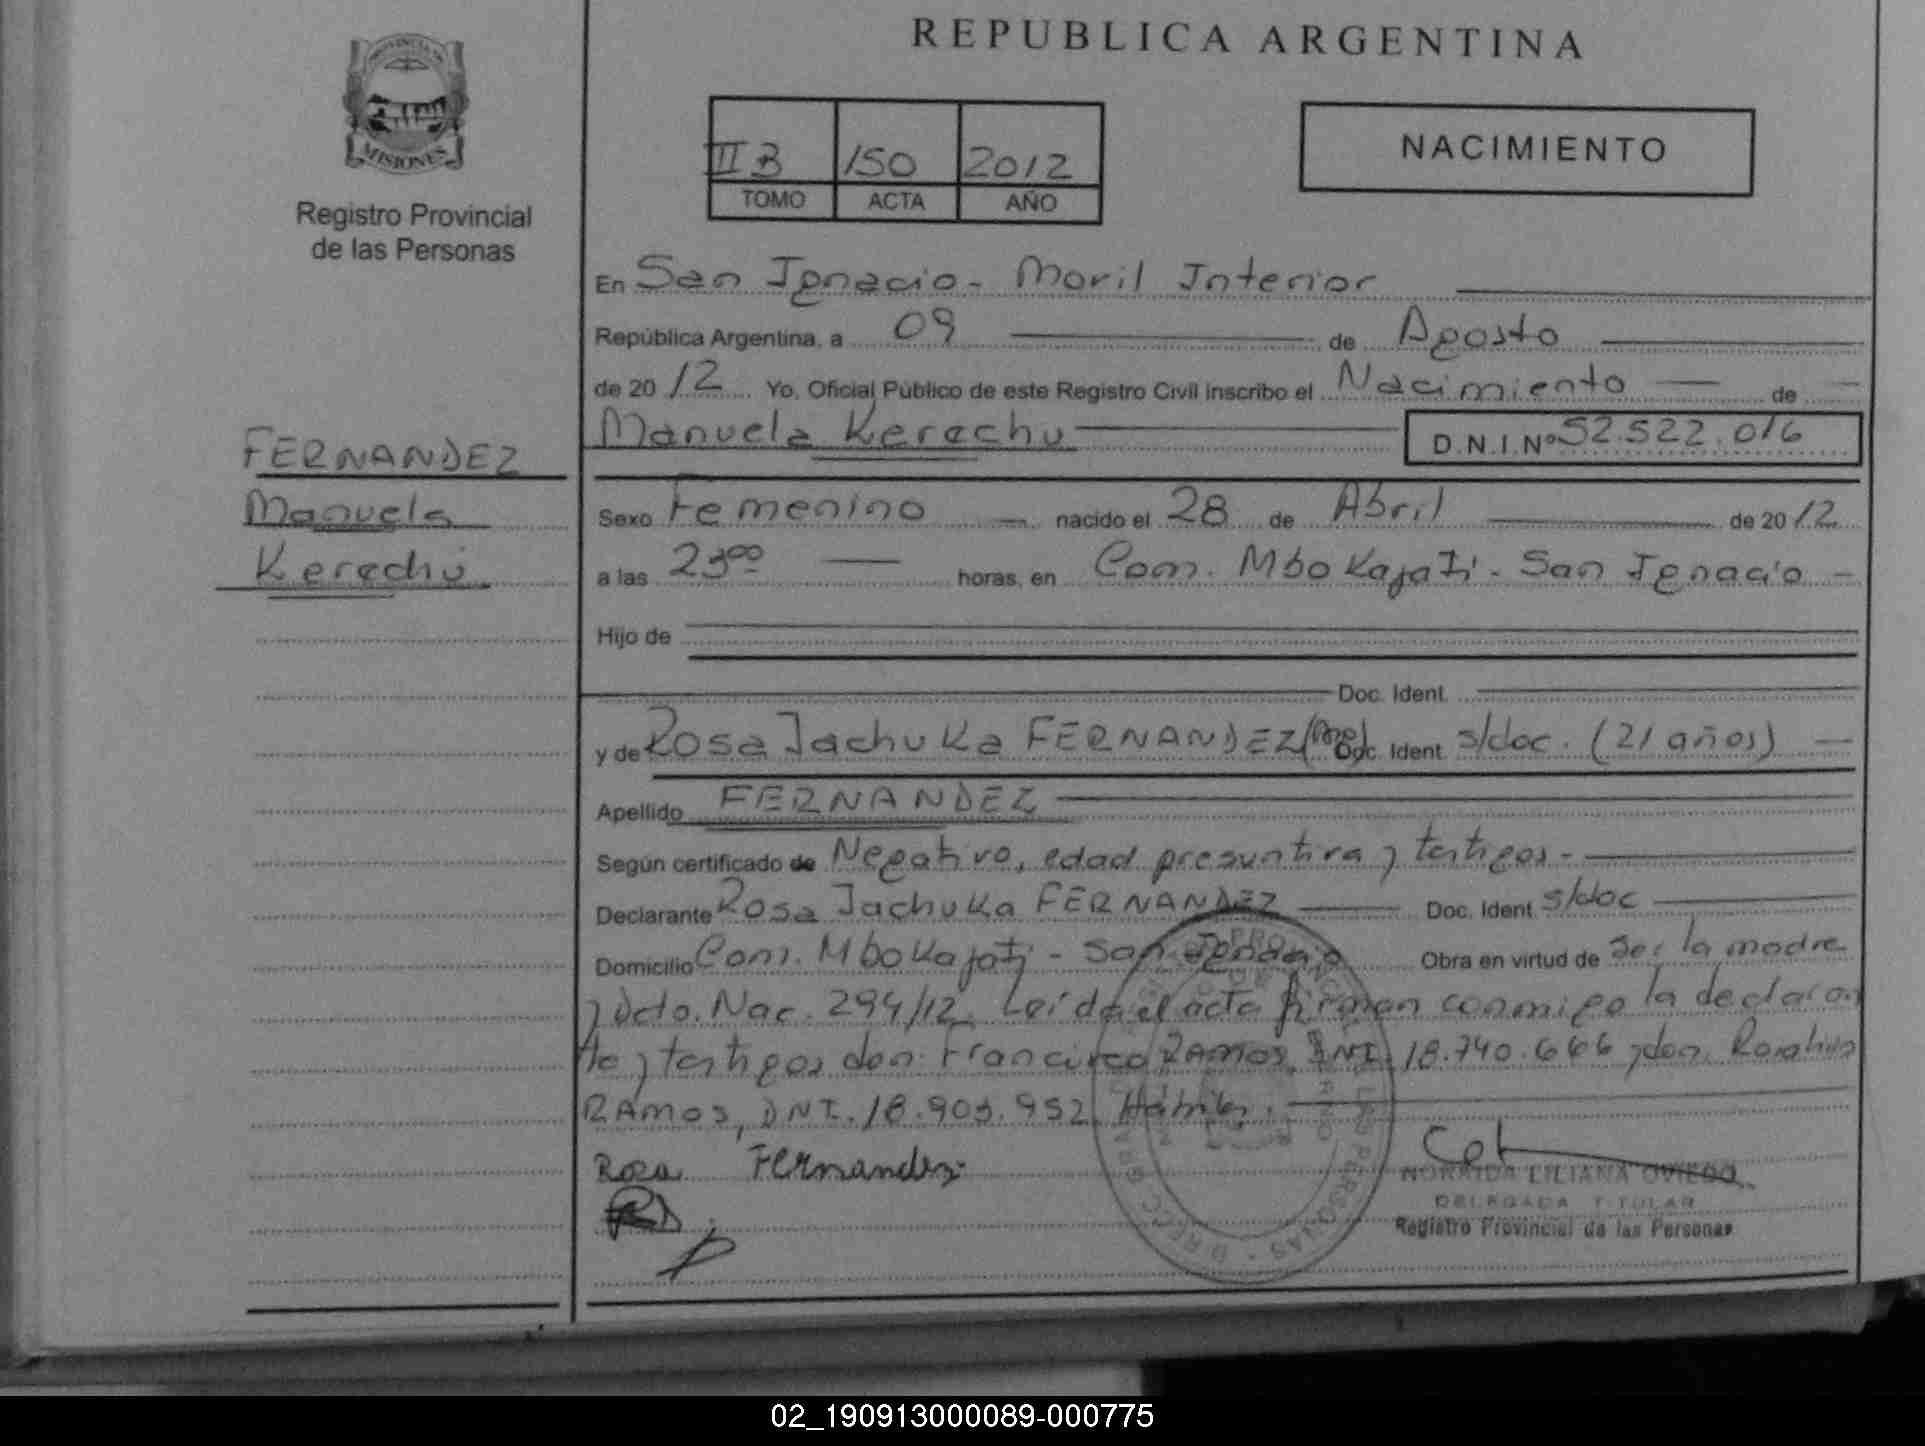 REPUBLICA ARGENTINA
MISIONES
Registro Provincial
de las Personas
II B 150 2012
TOMO ACTA AÑO
NACIMIENTO
En San Ignacio - Moril Interior
República Argentina, a 09 de Agosto
de 2012 Yo, Oficial Público de este Registro Civil inscribo el Nacimiento de
Manuela Kerechu D.N.I.Nº 52.522.016
FERNANDEZ
Manuela
Kerechu
Sexo Femenino nacido el 28 de Abril de 2012
a las 23 00 horas, en Com. Mbokajati - San Ignacio -
Hijo de
Doc. Ident.
y de Rosa Jachuka FERNANDEZ Doc. Ident. s/doc. (21 años)
Apellido FERNANDEZ
Según certificado de Negativo, edad presuntiva y testigos -
Declarante Rosa Jachuka FERNANDEZ Doc. Ident. s/doc
Domicilio Com. Mbokajati - San Ignacio Obra en virtud de ser la madre
y Dcto. Nac. 294/12. Leída el acta firman conmigo la declaran
te y testigos don: Francisco RAMOS, DNI. 18.740.666 y don
RAMOS, DNI. 18.903.952.
Rosa Fernandez
NORAIDA LILIANA OVIEDO
DELEGADA TITULAR
Registro Provincial de las Personas
02_190913000089-000775